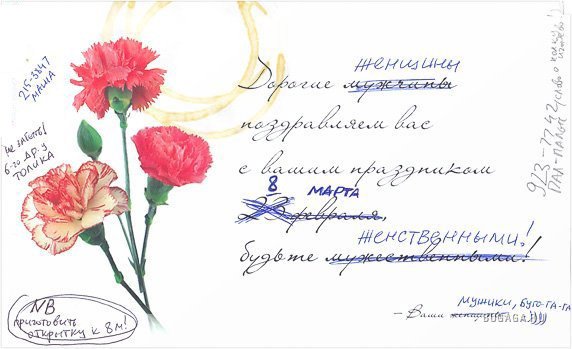 женщины
Дорогие мужчины
поздравляем вас
с вашим праздником
8 марта
23 февраля,
женственными!
будьте мужественными!
мужики, буго-га-га
– Ваши женщины )))
BUGAGA.RU
215-3847
МАША
НЕ ЗАБЫТЬ!
6-го Д.Р. У
ТОЛИКА
NB
приготовить
открытку к 8 м!
923-7742
ПАЛ-ПАЛЫЧ